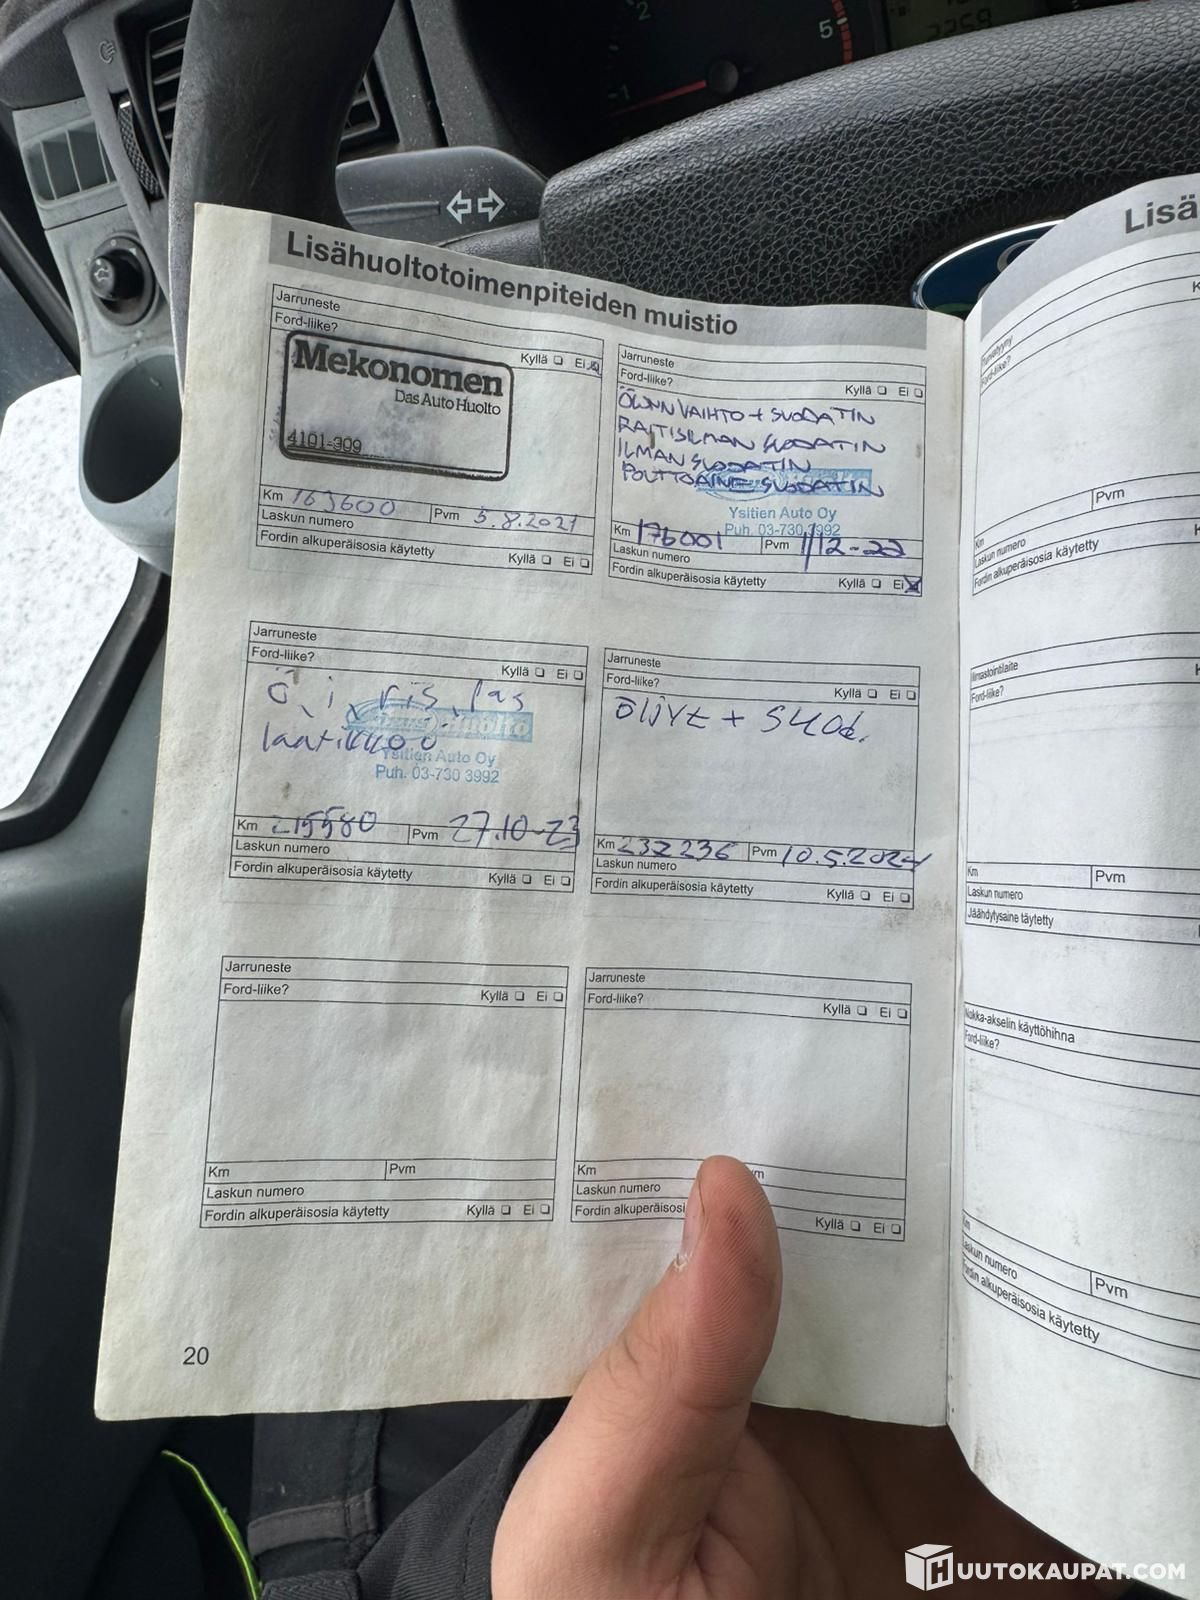 2
5
1
Lisähuoltotoimenpiteiden muistio
Jarruneste
Ford-liike?
Kyllä ❏ Ei ❏
Mekonomen
Das Auto Huolto
4101-309
Km 163600 Pvm 5.8.2021
Laskun numero
Fordin alkuperäisosia käytetty
Kyllä ❏ Ei ❏
Jarruneste
Ford-liike?
Kyllä ❏ Ei ❏
ÖLJYNVAIHTO + SUODATIN
RAITISILMAN SUODATIN
ILMANSUODATIN
POLTTOAINE SUODATIN
Ysitien Auto Oy
Puh. 03-730 3992
Km 176001 Pvm 1/12-22
Laskun numero
Fordin alkuperäisosia käytetty
Kyllä ❏ Ei ❏
Jarruneste
Ford-liike?
Kyllä ❏ Ei ❏
ö, i, ris, pas
laatikko ö
Huolto
Ysitien Auto Oy
Puh. 03-730 3992
Km 215580 Pvm 27.10-23
Laskun numero
Fordin alkuperäisosia käytetty
Kyllä ❏ Ei ❏
Jarruneste
Ford-liike?
Kyllä ❏ Ei ❏
öljyt + suod.
Km 232236 Pvm 10.5.2024
Laskun numero
Fordin alkuperäisosia käytetty
Kyllä ❏ Ei ❏
Jarruneste
Ford-liike?
Kyllä ❏ Ei ❏
Km Pvm
Laskun numero
Fordin alkuperäisosia käytetty
Kyllä ❏ Ei ❏
Jarruneste
Ford-liike?
Kyllä ❏ Ei ❏
Km
Laskun numero
Fordin alkuperäisosi
Kyllä ❏ Ei ❏
20
Lisä
Turvatyyny
Ford-liike?
Km Pvm
Laskun numero
Fordin alkuperäisosia käytetty
Ilmastointilaite
Ford-liike?
Km Pvm
Laskun numero
Jäähdytysaine täytetty
Nokka-akselin käyttöhihna
Ford-liike?
Km Pvm
Laskun numero
Fordin alkuperäisosia käytetty
HUUTOKAUPAT.COM